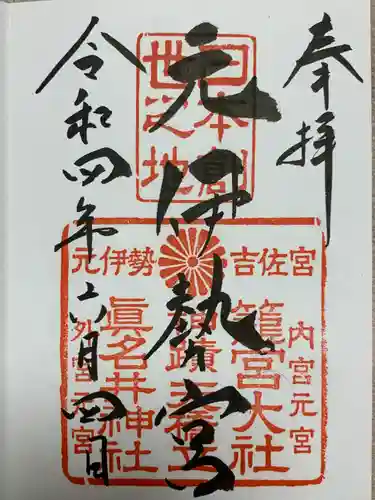 奉拝
元伊勢宮
令和四年六月四日
日本創
世之地
元伊勢
吉佐宮
内宮元宮
籠宮大社
神蹟天橋立
眞名井神社
外宮元宮